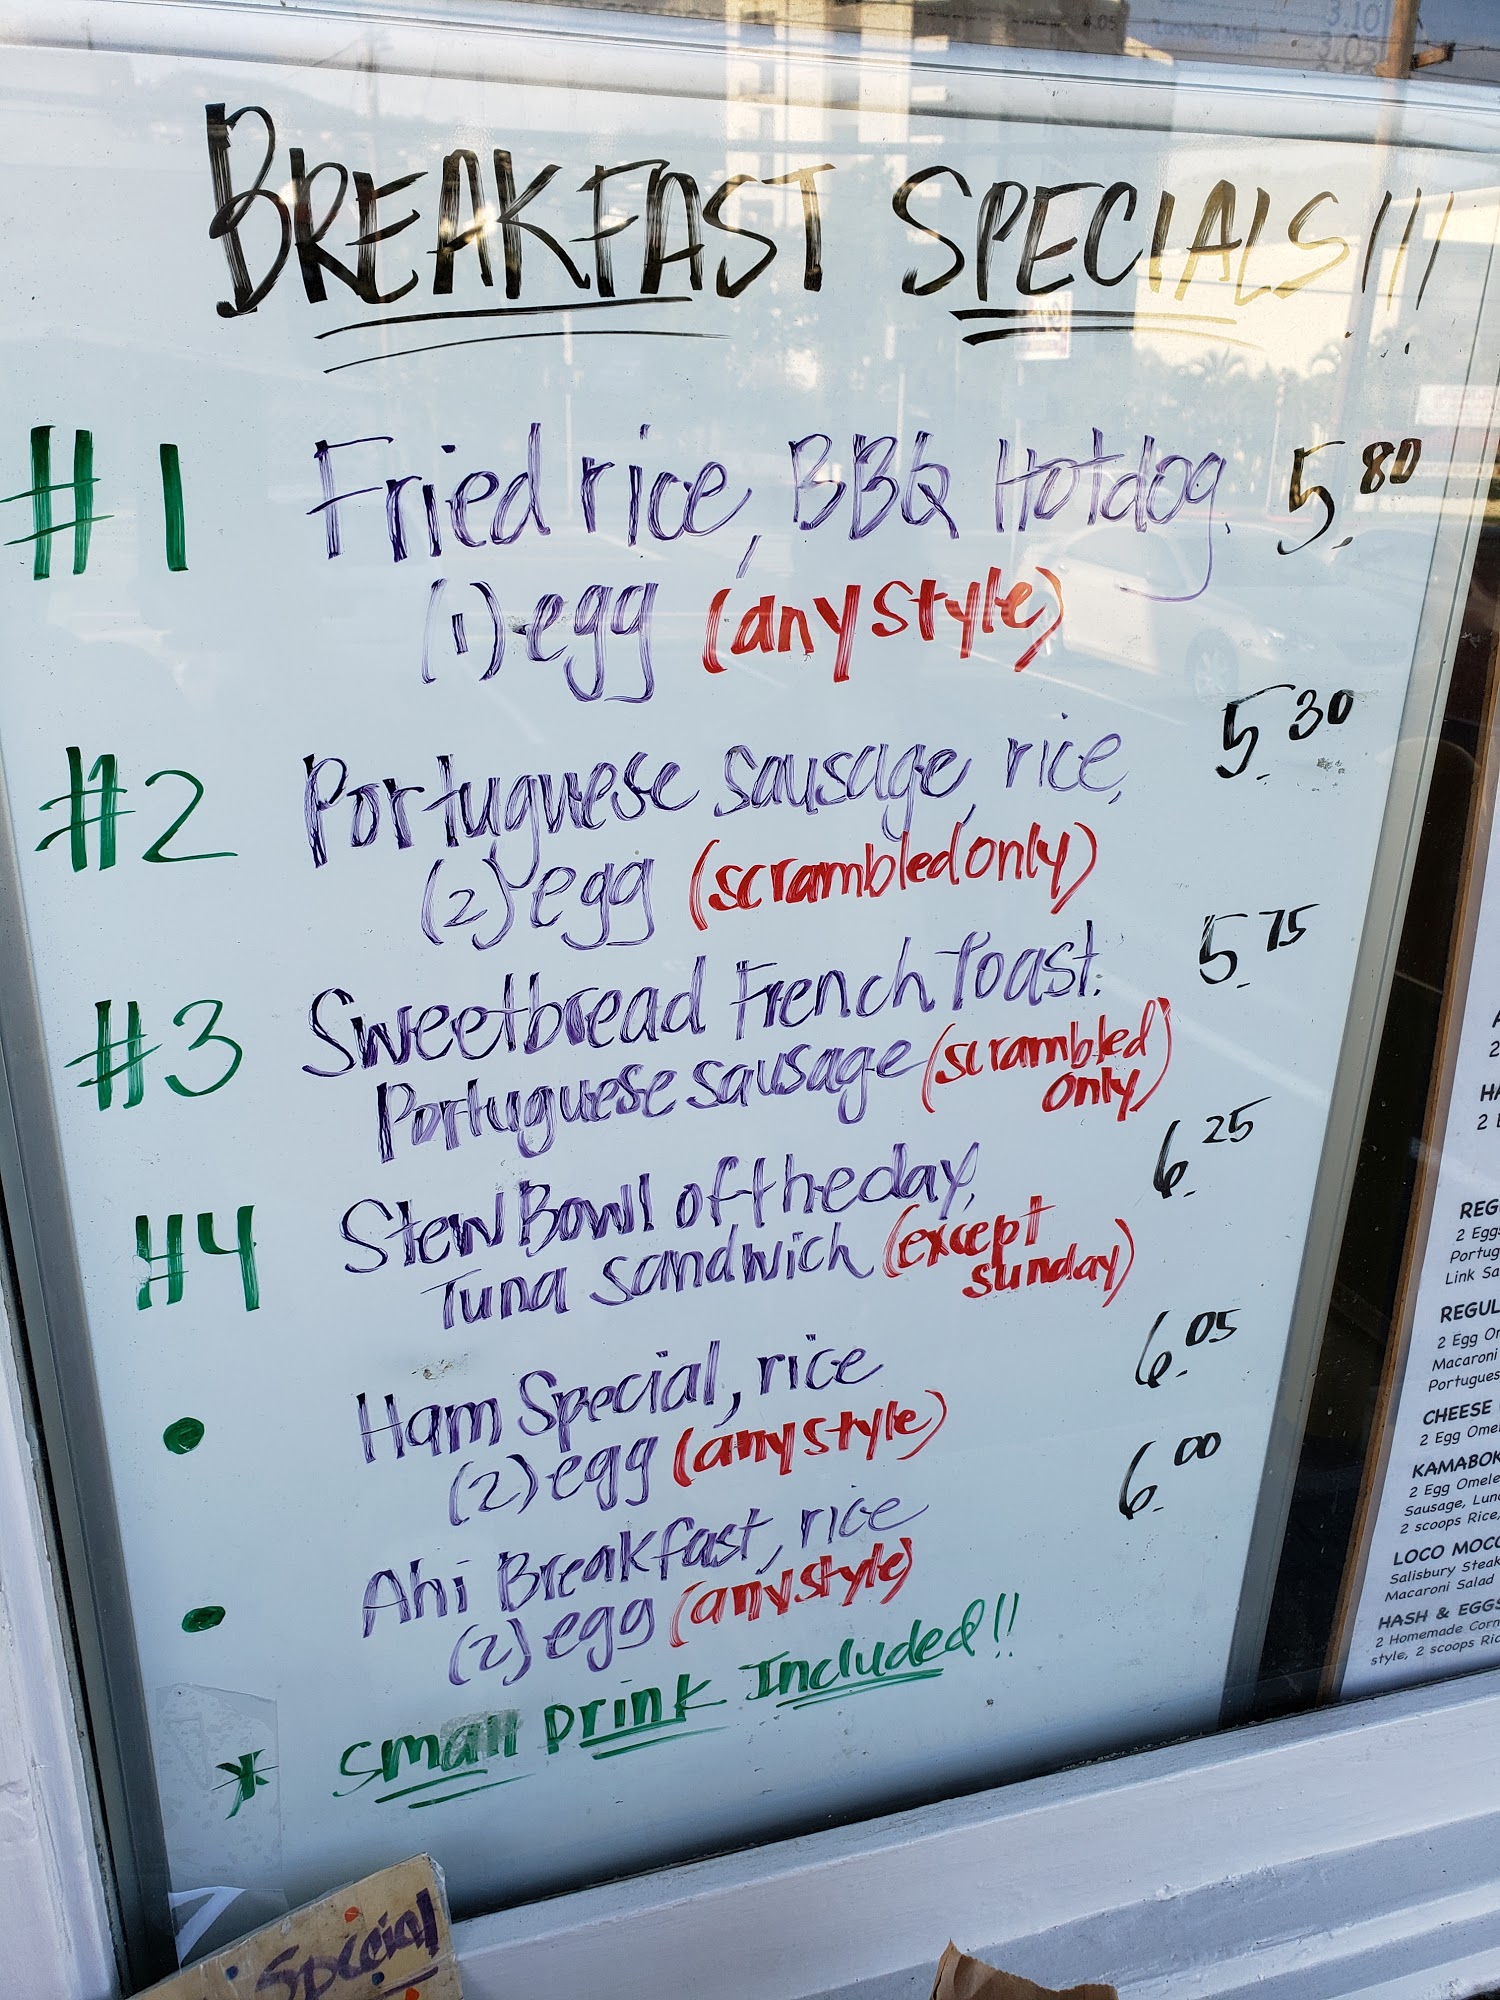 3.10
3.05
BREAKFAST SPECIALS!!!
#1 Fried rice, BBQ Hotdog. 5.80
(1) egg (any style)
#2 Portuguese sausage, rice, 5.30
(2) egg (scrambled only)
#3 Sweetbread French Toast. 5.75
Portuguese sausage (scrambled
only)
#4 Stew Bowl of the day, 6.25
Tuna sandwich (except
sunday)
• Ham Special, rice 6.05
(2) egg (any style)
• Ahi Breakfast, rice 6.00
(2) egg (any style)
* Small Drink Included!!
Special
2 
HA
2 E
REG
2 Eggs
Portug
Link Sa
REGUL
2 Egg Om
Macaroni
Portugues
CHEESE
2 Egg Omel
KAMABOK
2 Egg Omele
Sausage, Lunc
2 scoops Rice,
LOCO MOCO
Salisbury Steak
Macaroni Salad
HASH & EGGS
2 Homemade Corn
style, 2 scoops Ric